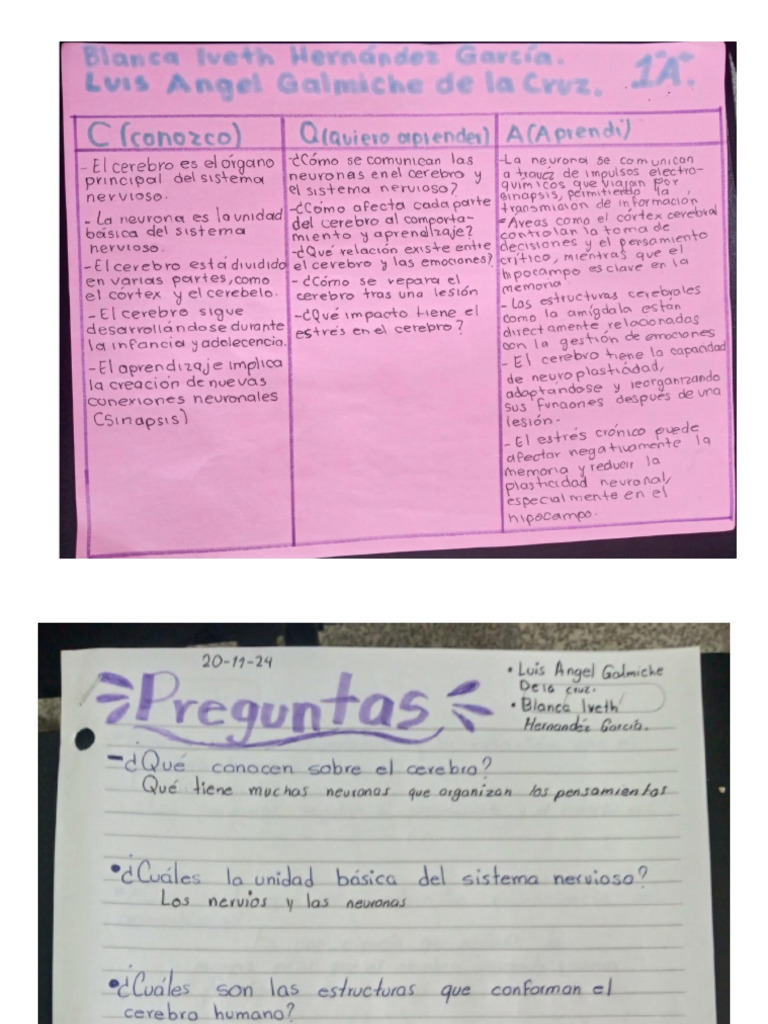 Blanca Iveth Hernández García.
Luis Angel Galmiche de la Cruz.
1°A.
C (conozco)
- El cerebro es el órgano
principal del sistema
nervioso.
- La neurona es la unidad
básica del sistema
nervioso.
- El cerebro está dividido
en varias partes, como
el córtex y el cerebelo.
- El cerebro sigue
desarrollándose durante
la infancia y adelecencia.
- El aprendizaje implica
la creación de nuevas
conexiones neuronales
(Sinapsis)
Q (Quiero aprender)
-¿Cómo se comunican las
neuronas en el cerebro y
el sistema nervioso?
-¿Cómo afecta cada parte
del cerebro al comporta-
miento y aprendizaje?
-¿Qué relación existe entre
el cerebro y las emociones?
- ¿Cómo se repara el
cerebro tras una lesión
-¿Qué impacto tiene el
estrés en el cerebro?
A (Aprendí)
-La neurona se comunican
a través de impulsos electro-
químicos que viajan por
sinapsis, permitiendo la
transmisión de información
- Áreas como el córtex cerebral
controlan la toma de
decisiones y el pensamiento
crítico, mientras que el
hipocampo es clave en la
memoria
- Las estructuras cerebrales
como la amígdala están
directamente relacionadas
con la gestión de emociones
- El cerebro tiene la capacidad
de neuroplasticidad,
adoptandose y reorganizando
sus funciones después de una
lesión.
- El estrés crónico puede
afectar negativamente la
memoria y reducir la
plasticidad neuronal,
especialmente en el
hipocampo.
20-11-24
Preguntas
• Luis Angel Galmiche
De la cruz.
• Blanca Iveth
Hernandéz García.
-¿Qué conocen sobre el cerebro?
Qué tiene muchas neuronas que organizan los pensamientos
•¿Cuáles la unidad básica del sistema nervioso?
Los nervios y las neuronas
•¿Cuáles son las estructuras que conforman el
cerebro humano?